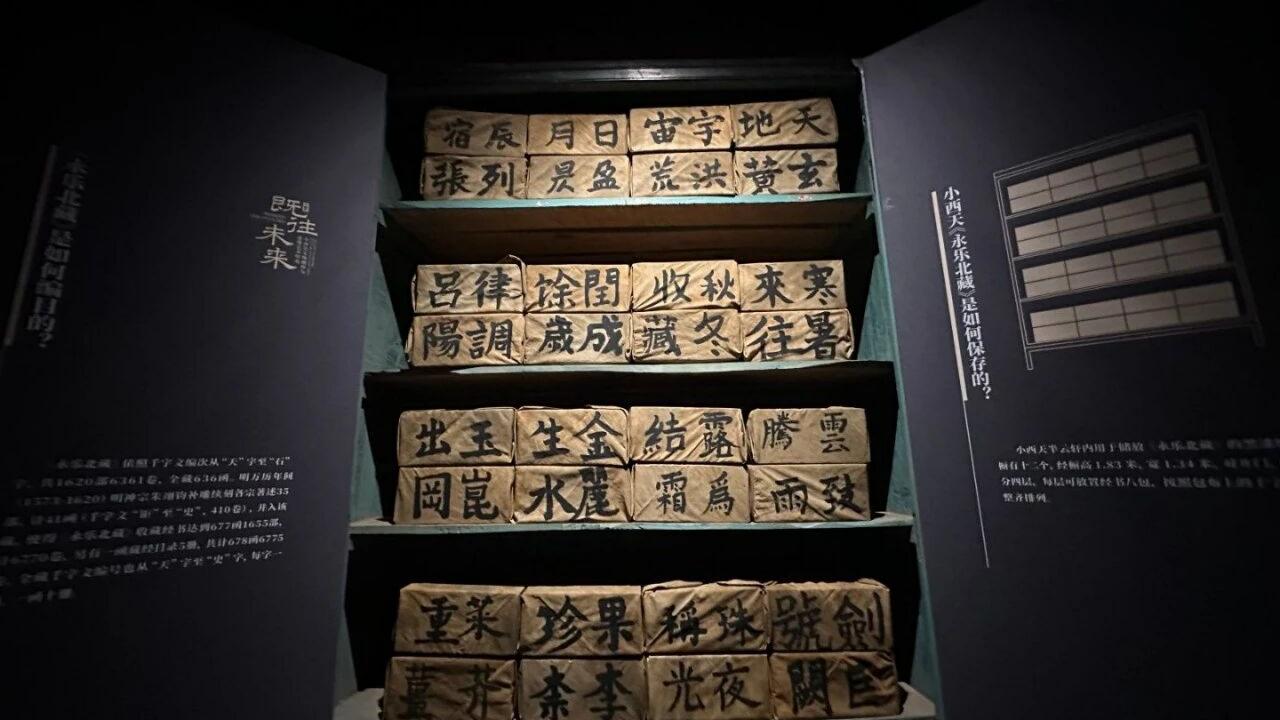 《永乐北藏》是如何编目的？
既往
未来
永乐北藏》依照千字文编次从“天”字至“石”
字，共1620部6361卷，全藏636函。明万历年间
（1573-1620）明神宗朱翊钧补雕续刻各宗著述35
计41函（千字文“钜”至“史”，410卷），并入该
藏，使得《永乐北藏》收藏经书达到677函1655部，
6770卷，另有一函藏经目录5册，共计678函6775
全藏千字文编号也从“天”字至“史”字，每字一
一函十册
天地 宇宙 日月 辰宿
玄黃 洪荒 盈昃 列張
寒來 秋收 閏餘 律呂
暑往 冬藏 成歲 調陽
雲騰 露結 金生 玉出
致雨 爲霜 麗水 崑岡
劍號 珠稱 果珍 菜重
巨闕 夜光 李柰 芥薑
小西天《永乐北藏》是如何保存的？
小西天半云轩内用于储放《永乐北藏》的黑漆
橱有十二个，经橱高1.83米，宽1.34米，
分四层，每层可放置经书八包，按照包布上的千
整齐排列。